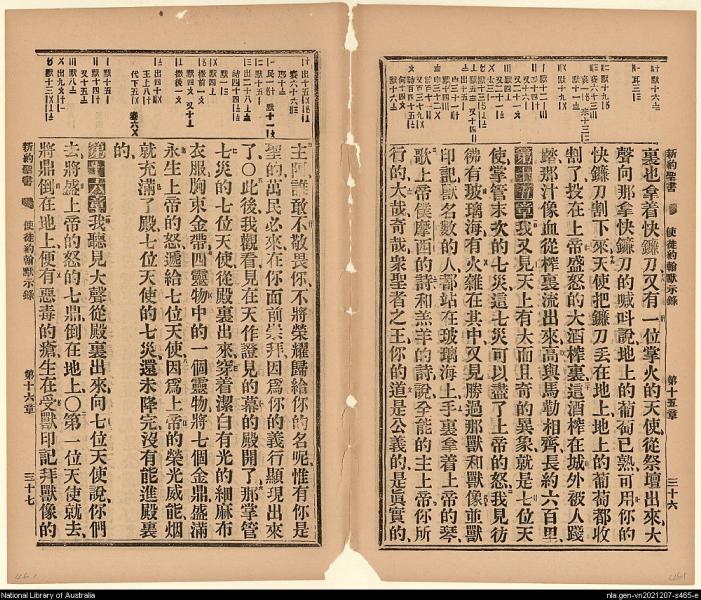 新約聖書 使徒約翰默示錄 第十五章 三十六
裏也拿着快鐮刀又有一位掌火的天使從祭壇出來大
聲向那拿快鐮刀的喊呌說地上的葡萄已熟可用你的
快鐮刀割下來天使把鐮刀丟在地上地上的葡萄都收
割了投在上帝盛怒的大酒榨裏這酒榨在城外被人踐
踏那汁像血從榨裏流出來高與馬勒相齊長約六百里
第十五章我又見天上有大而且奇的異象就是七位天
使掌管末次的七災這七災可以盡了上帝的怒我見彷
彿有玻璃海有火雜在其中又見勝過那獸和獸像並獸
印記獸名數的人都站在玻璃海上手裏拿着上帝的琴
歌上帝僕摩西的詩和羔羊的詩說全能的主上帝你所
行的大哉奇哉衆聖者之王你的道是公義的是眞實的
主阿誰敢不敬畏你不將榮耀歸給你的名呢惟有你是
聖的萬民必來在你面前崇拜因爲你的義行顯現出來
了○此後我觀看見在天作證見的幕的殿開了那掌管
七災的七位天使從殿裏出來穿着潔白有光的細麻布
衣服胸束金帶四靈物中的一個靈物將七個金鼎盛滿
永生上帝的怒遞給七位天使因爲上帝的榮光威能烟
就充滿了殿七位天使的七災還未降完沒有能進殿裏
的
第十六章我聽見大聲從殿裏出來向七位天使說你們
去將盛上帝的怒的七鼎倒在地上○第一位天使就去
將鼎倒在地上便有惡毒的瘡生在受獸印記拜獸像的
新約聖書 使徒約翰默示錄 第十六章 三十七
National Library of Australia
nla.gen-vn2021207-s465-e